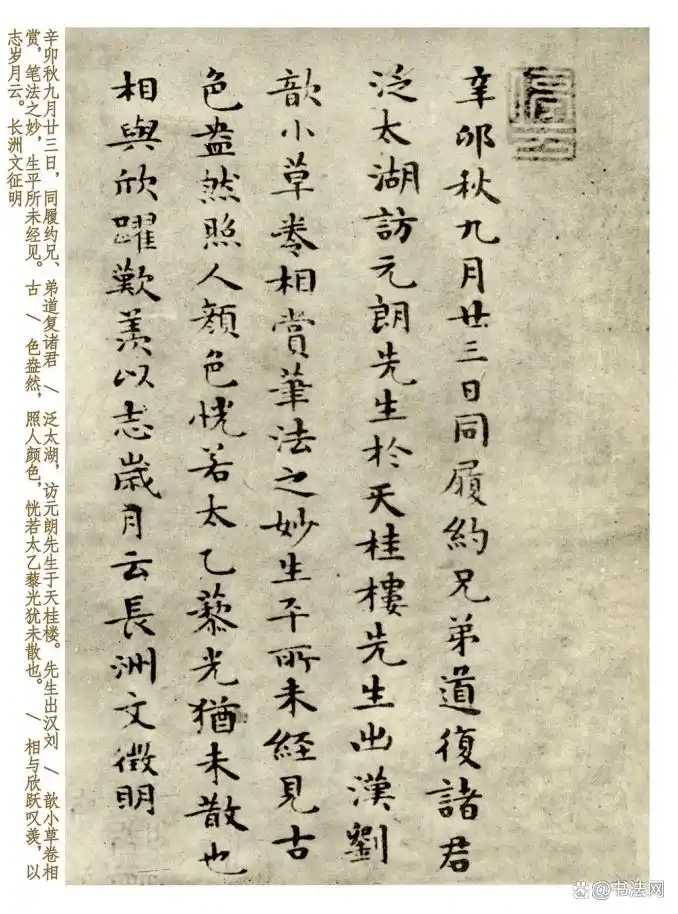 辛卯秋九月廿三日同履約兄弟道復諸君
泛太湖訪元朗先生於天桂樓先生出漢劉
歆小草卷相賞筆法之妙生平所未經見古
色盎然照人顏色恍若太乙藜光猶未散也
相與欣躍歎羨以志歲月云長洲文徵明
辛卯秋九月廿三日，同履约兄、弟道复诸君 / 泛太湖，访元朗先生于天桂楼。先生出汉刘 / 歆小草卷相
赏，笔法之妙，生平所未经见。古 / 色盎然，照人颜色，恍若太乙藜光犹未散也。 / 相与欣跃叹羡，以
志岁月云。长洲文征明
@书法网